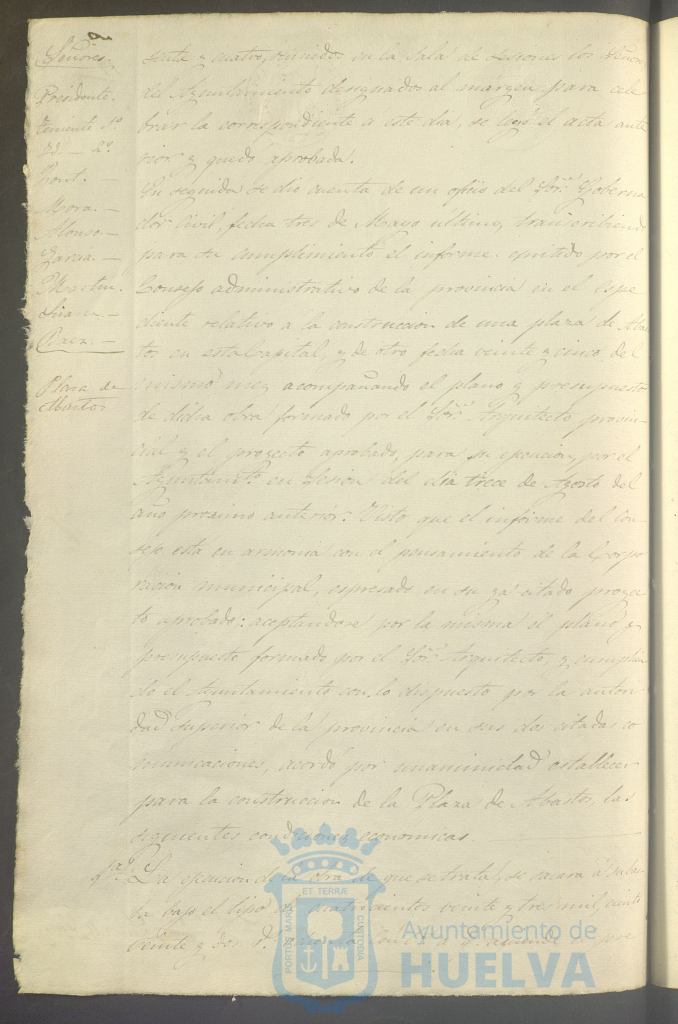 Señores.
Presidente.
Teniente 1º
Id — 2º
Font. —
Mora. —
Alonso. —
Garcia. —
Martin.
Suarez —
Paez. —
Plaza de
Abastos
sente y cuatro, reunidos en la Sala de Sesiones los Señores
del Ayuntamiento designados al margen para cele
brar la correspondiente a este dia, se leyó el acta ante
rior y quedó aprobada.
En seguida se dio cuenta de un oficio del Sor. Goberna
dor Civil, fecha tres de Mayo ultimo, transcribiendo
para su cumplimiento el informe emitido por el
Consejo administrativo de la provincia en el espe
diente relativo á la construccion de una plaza de Abas
tos en esta Capital, y de otro fecha veinte y cinco del
mismo mes, acompañando el plano y presupuesto
de dicha obra formado por el Sor. Arquitecto provin-
cial y el proyecto aprobado, para su ejecucion, por el
Ayuntamto. en sesion del dia trece de Agosto del
año proximo anterior. Visto que el informe del Con-
sejo está en armonia con el pensamiento de la Corpo
racion municipal, espresado en su ya citado proyec
to aprobado: aceptandose por la misma el plano y
presupuesto formado por el Sor. Arquitecto, y cumplien
do el Ayuntamiento con lo dispuesto por la autori
dad Superior de la provincia en sus dos citadas co
municaciones, acordó por unanimidad establecer
para la construccion de la Plaza de Abastos, las
siguientes condiciones economicas.
1ª La ejecucion de la obra de que se trata, se sacará á subas-
ta bajo el tipo de cuatrocientos veinte y tres mil, ciento
veinte y dos
PORTUS MARIS
ET TERRÆ
CUSTODIA
Ayuntamiento de
HUELVA